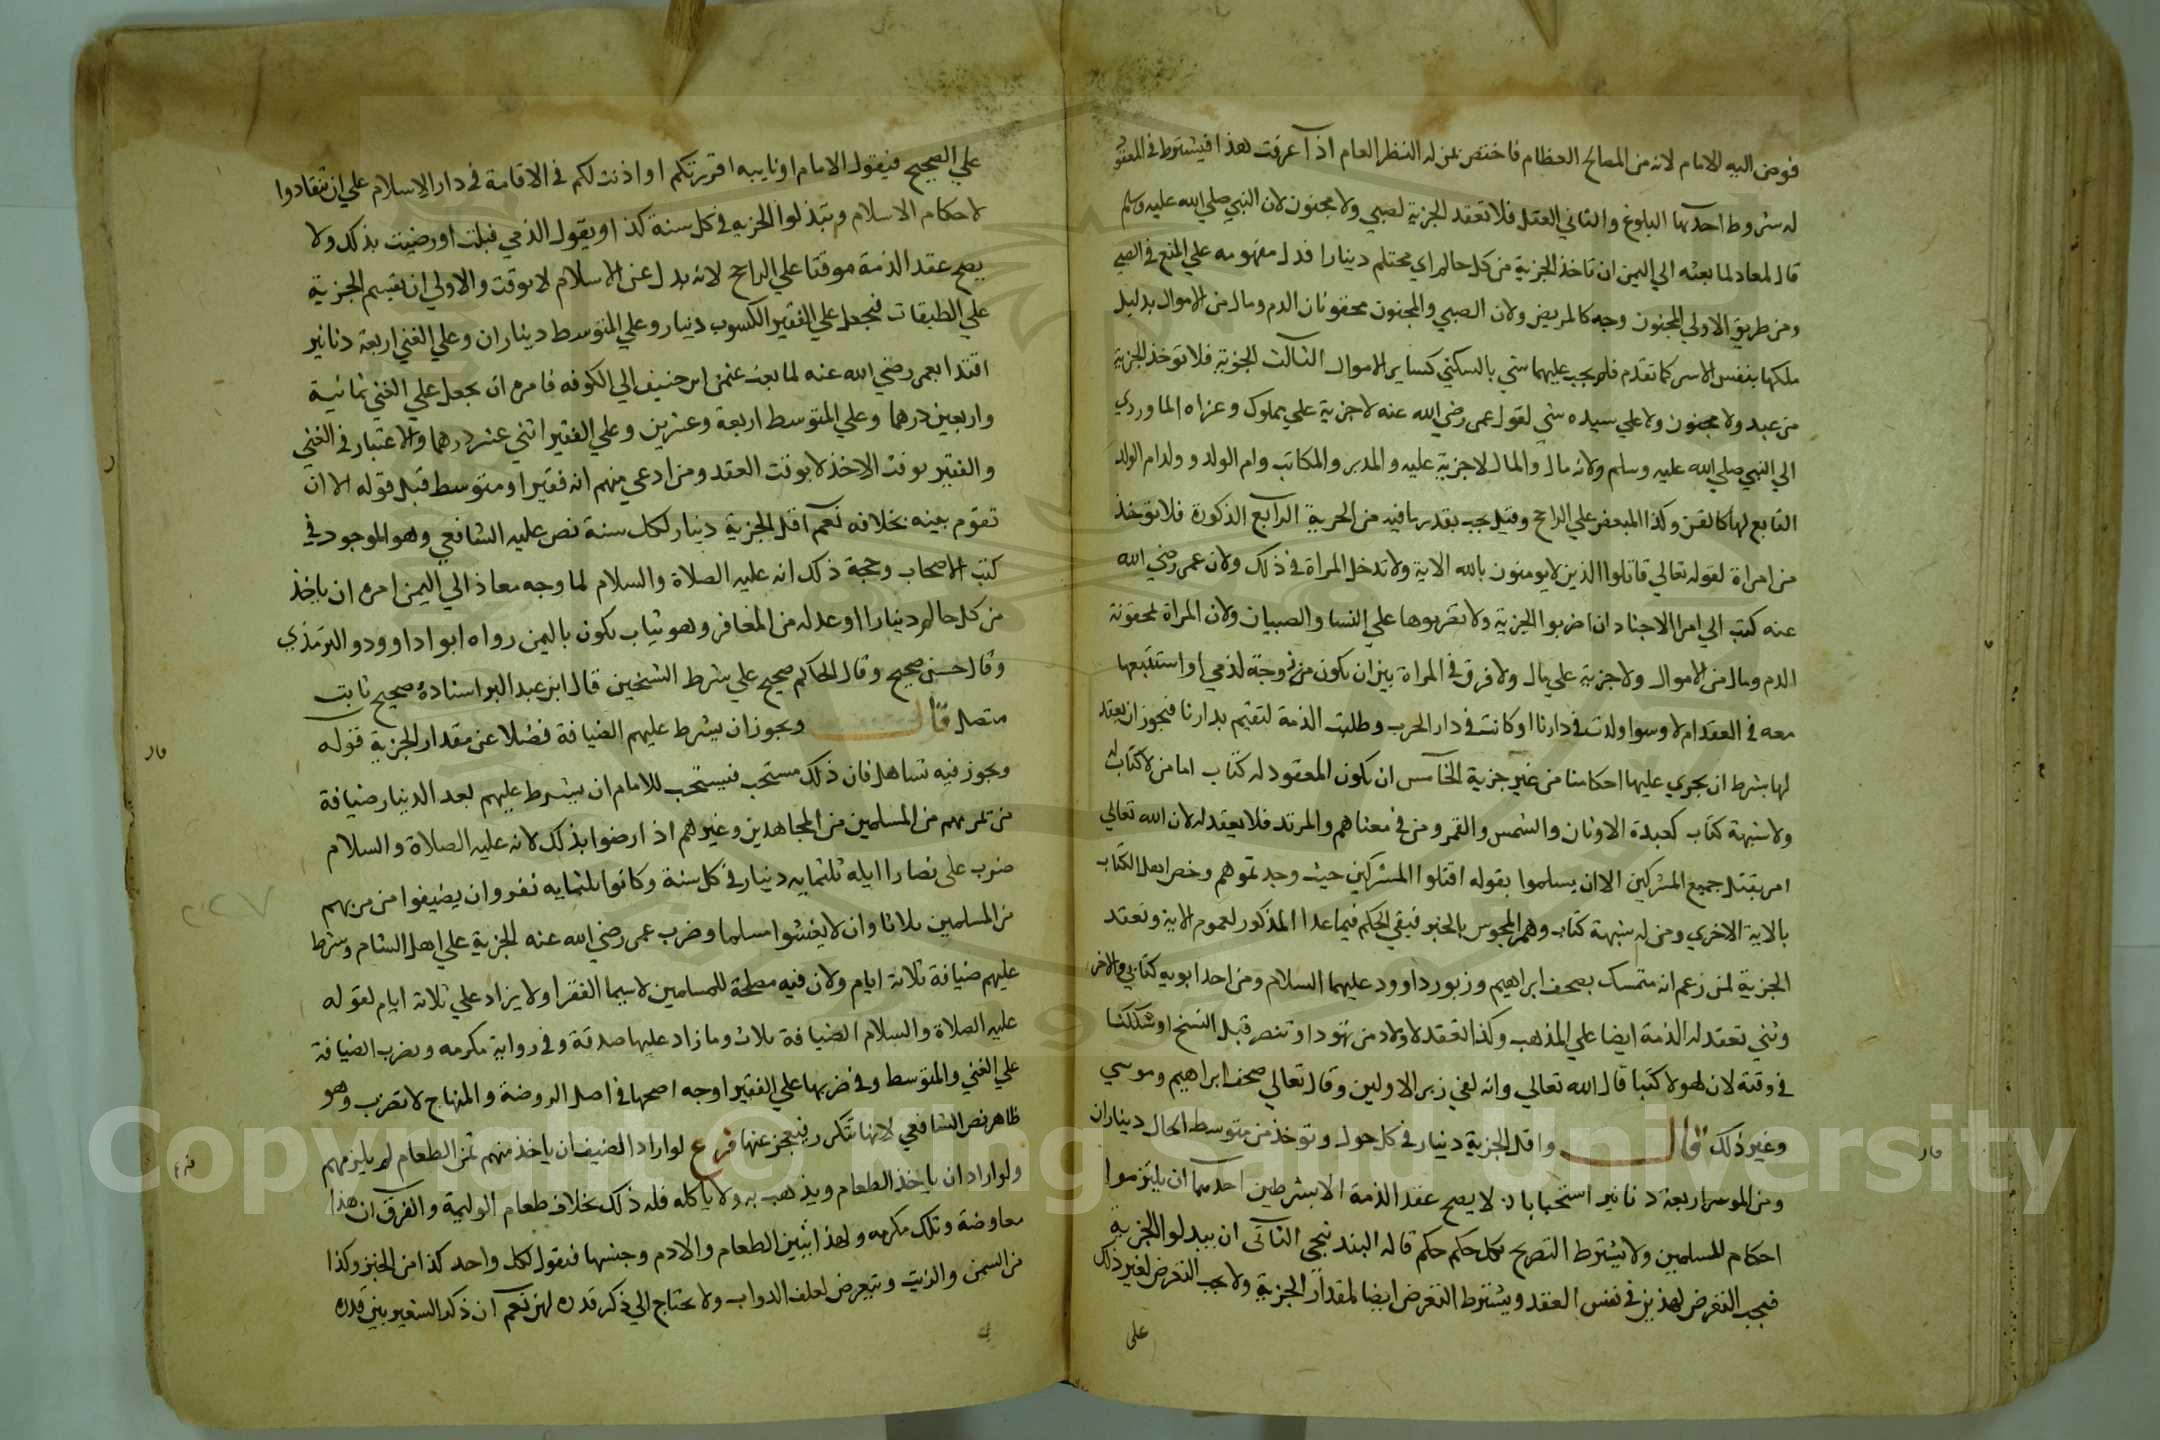 فوض اليه الامام لانه من المصالح العظام فاختص بمن له النظر العام اذا عرفت هذا فيشترط في المعقود
له شروط احدها البلوغ والثاني العقل فلا تعقد الجزية لصبي ولا مجنون لان النبي صلي الله عليه وسلم
قال لمعاد لما بعثه الي اليمن ان تاخذ الجزية من كل حالم اي محتلم دينارا فدل مفهومه علي المنع في الصبي
ومن طريق الاولي المجنون وجه كالمريض ولان الصبي والمجنون محقونان الدم ومال من الاموال بدليل
ملكها بنفس الاسر كما تقدم فلم يجب عليهما شي بالسكني كساير الاموال الثالث الحرية فلا توخذ الجزية
من عبد ولا مجنون ولا علي سيده شي لقول عمر رضي الله عنه لا جزية علي مملوك وعزاه الماوردي
الي النبي صلي الله عليه وسلم ولانه مال والمال لا جزية عليه والمدبر والمكاتب وام الولد وولد ام الولد
التابع لها كالقن وكذا المبعض علي الراجح وقيل يجب بقدر ما فيه من الحرية الرابع الذكورة فلا توخذ
من امراة لقوله تعالي قاتلوا الذين لا يومنون بالله الاية ولا تدخل المراة في ذلك ولان عمر رضي الله
عنه كتب الي امرا الاجناد ان اضربوا الجزية ولا تضربوها علي النسا والصبيان ولان المراة محقونة
الدم ومال من الاموال ولا جزية علي مال ولا فرق في المراة بين ان تكون مزوجة لذمي او استتبعها
معه في العقد ام لا وسوا ولدت في دارنا او كانت في دار الحرب وطلبت الذمة لتقيم بدارنا فيجوز ان يعقد
لها بشرط ان يجري عليها احكامنا من غير جزية الخامس ان يكون المعقود له كتاب اما من لا كتاب له
ولا شبهة كتاب كعبدة الاوثان والشمس والقمر ومن في معناهم والمرتد فلا يعقد له لان الله تعالي
امر بقتل جميع المشركين الا ان يسلموا بقوله اقتلوا المشركين حيث وجدتموهم وخص اهل الكتاب
بالاية الاخري ومن له شبهة كتاب وهم المجوس بالخبر فبقي الحكم فيما عدا المذكور لعموم الاية وتعقد
الجزية لمن زعم انه متمسك بصحف ابراهيم وزبور داوود عليهما السلام ومن احد ابويه كتابي والاخر
وثني تعقد له الذمة ايضا علي المذهب وكذا تعقد لاولاد من تهود او تنصر قبل النسخ او شككنا
في وقته لان لهولا كتبا قال الله تعالي وانه لفي زبر الاولين وقال تعالي صحف ابراهيم وموسي
وغير ذلك قال واقل الجزية دينار في كل حول وتوخذ من متوسط الحال ديناران
ومن الموسر اربعة دنانير استحبابا لا يصح عقد الذمة الا بشرطين احدهما ان يلتزموا
احكام المسلمين ولا يشترط التصريح بكل حكم حكم قاله البندنيجي الثاني ان يبدلوا الجزية
فيجب التعرض لهذين في نفس العقد ويشترط التعرض ايضا لمقدار الجزية ولا يجب التعرض لغير ذلك
علي
قال
علي الصحيح فيقول الامام او نايبه اقررتكم او اذنت لكم في الاقامة في دار الاسلام علي ان تنقادوا
لاحكام الاسلام وتبذلوا الجزيه في كل سنة كذا ويقول الذمي قبلت او رضيت بذلك ولا
يصح عقد الذمة موقتا علي الراجح لانه بدل عن الاسلام لا يوقت والاولي ان يقسم الجزية
علي الطبقات فيجعل علي الفقير الكسوب دينار وعلي المتوسط ديناران وعلي الغني اربعة دنانير
اقتدا بعمر رضي الله عنه لما بعث عثمن ابن حنيف الي الكوفه فامره ان يجعل علي الغني ثمانية
واربعين درهما وعلي المتوسط اربعة وعشرين وعلي الفقير اثني عشر درهما والاعتبار في الغني
والفقير بوقت الاخذ لا بوقت العقد ومن ادعي منهم انه فقير او متوسط قبل قوله الا ان
تقوم بينه بخلافه نعم اقل الجزية دينار لكل سنة نص عليه الشافعي وهو الموجود في
كتب الاصحاب وحجة ذلك انه عليه الصلاة والسلام لما وجه معاذ الي اليمن امره ان ياخذ
من كل حالم دينارا او عدله من المغافر وهو ثياب تكون باليمن رواه ابوا داوود والترمذي
وقال حسن صحيح وقال الحاكم صحيح علي شرط الشيخين قال ابن عبد البر اسناده صحيح ثابت
متصل قال ويجوز ان يشرط عليهم الضيافة فضلا عن مقدار الجزية قوله
ويجوز فيه تساهل فان ذلك مستحب فيستحب للامام ان يشرط عليهم بعد الدينار ضيافة
من تمر بهم من المسلمين من المجاهدين وغيرهم اذا رضوا بذلك لانه عليه الصلاة والسلام
ضرب علي نصارا ايله ثلثمايه دينار في كل سنة وكانوا ثلثمايه نفر وان يضيفوا من مر بهم
من المسلمين ثلاثا وان لا يغشوا مسلما وضرب عمر رضي الله عنه الجزية علي اهل الشام وشرط
عليهم ضيافة ثلاثة ايام ولان فيه مصلحة للمسلمين لاسيما الفقرا ولا يزاد علي ثلاثة ايام لقوله
عليه الصلاة والسلام الضيافة ثلاث وما زاد عليها صدقة وفي رواية مكرمه وتضرب الضيافة
علي الغني والمتوسط وفي ضربها علي الفقير اوجه اصحها في اصل الروضة والمنهاج لا تضرب وهو
ظاهر نص الشافعي لانها تتكرر فيعجز عنها فرع لو اراد الضيف ان ياخذ منهم ثمن الطعام لم يلزمهم
ولو اراد ان ياخذ الطعام ويذهب به ولا ياكله فله ذلك بخلاف طعام الوليمة والفرق ان هذا
معاوضة وتلك مكرمه ولهذا يبين الطعام والادم وجنسها فيقول لكل واحد كذا من الخبز وكذا
من السمن والزيت ويتعرض لعلف الدواب ولا يحتاج الي ذكر قدره لهن نعم ان ذكر الشعير بين قدره
قال
فرع
٢٢٧
Copyright © King Saud University